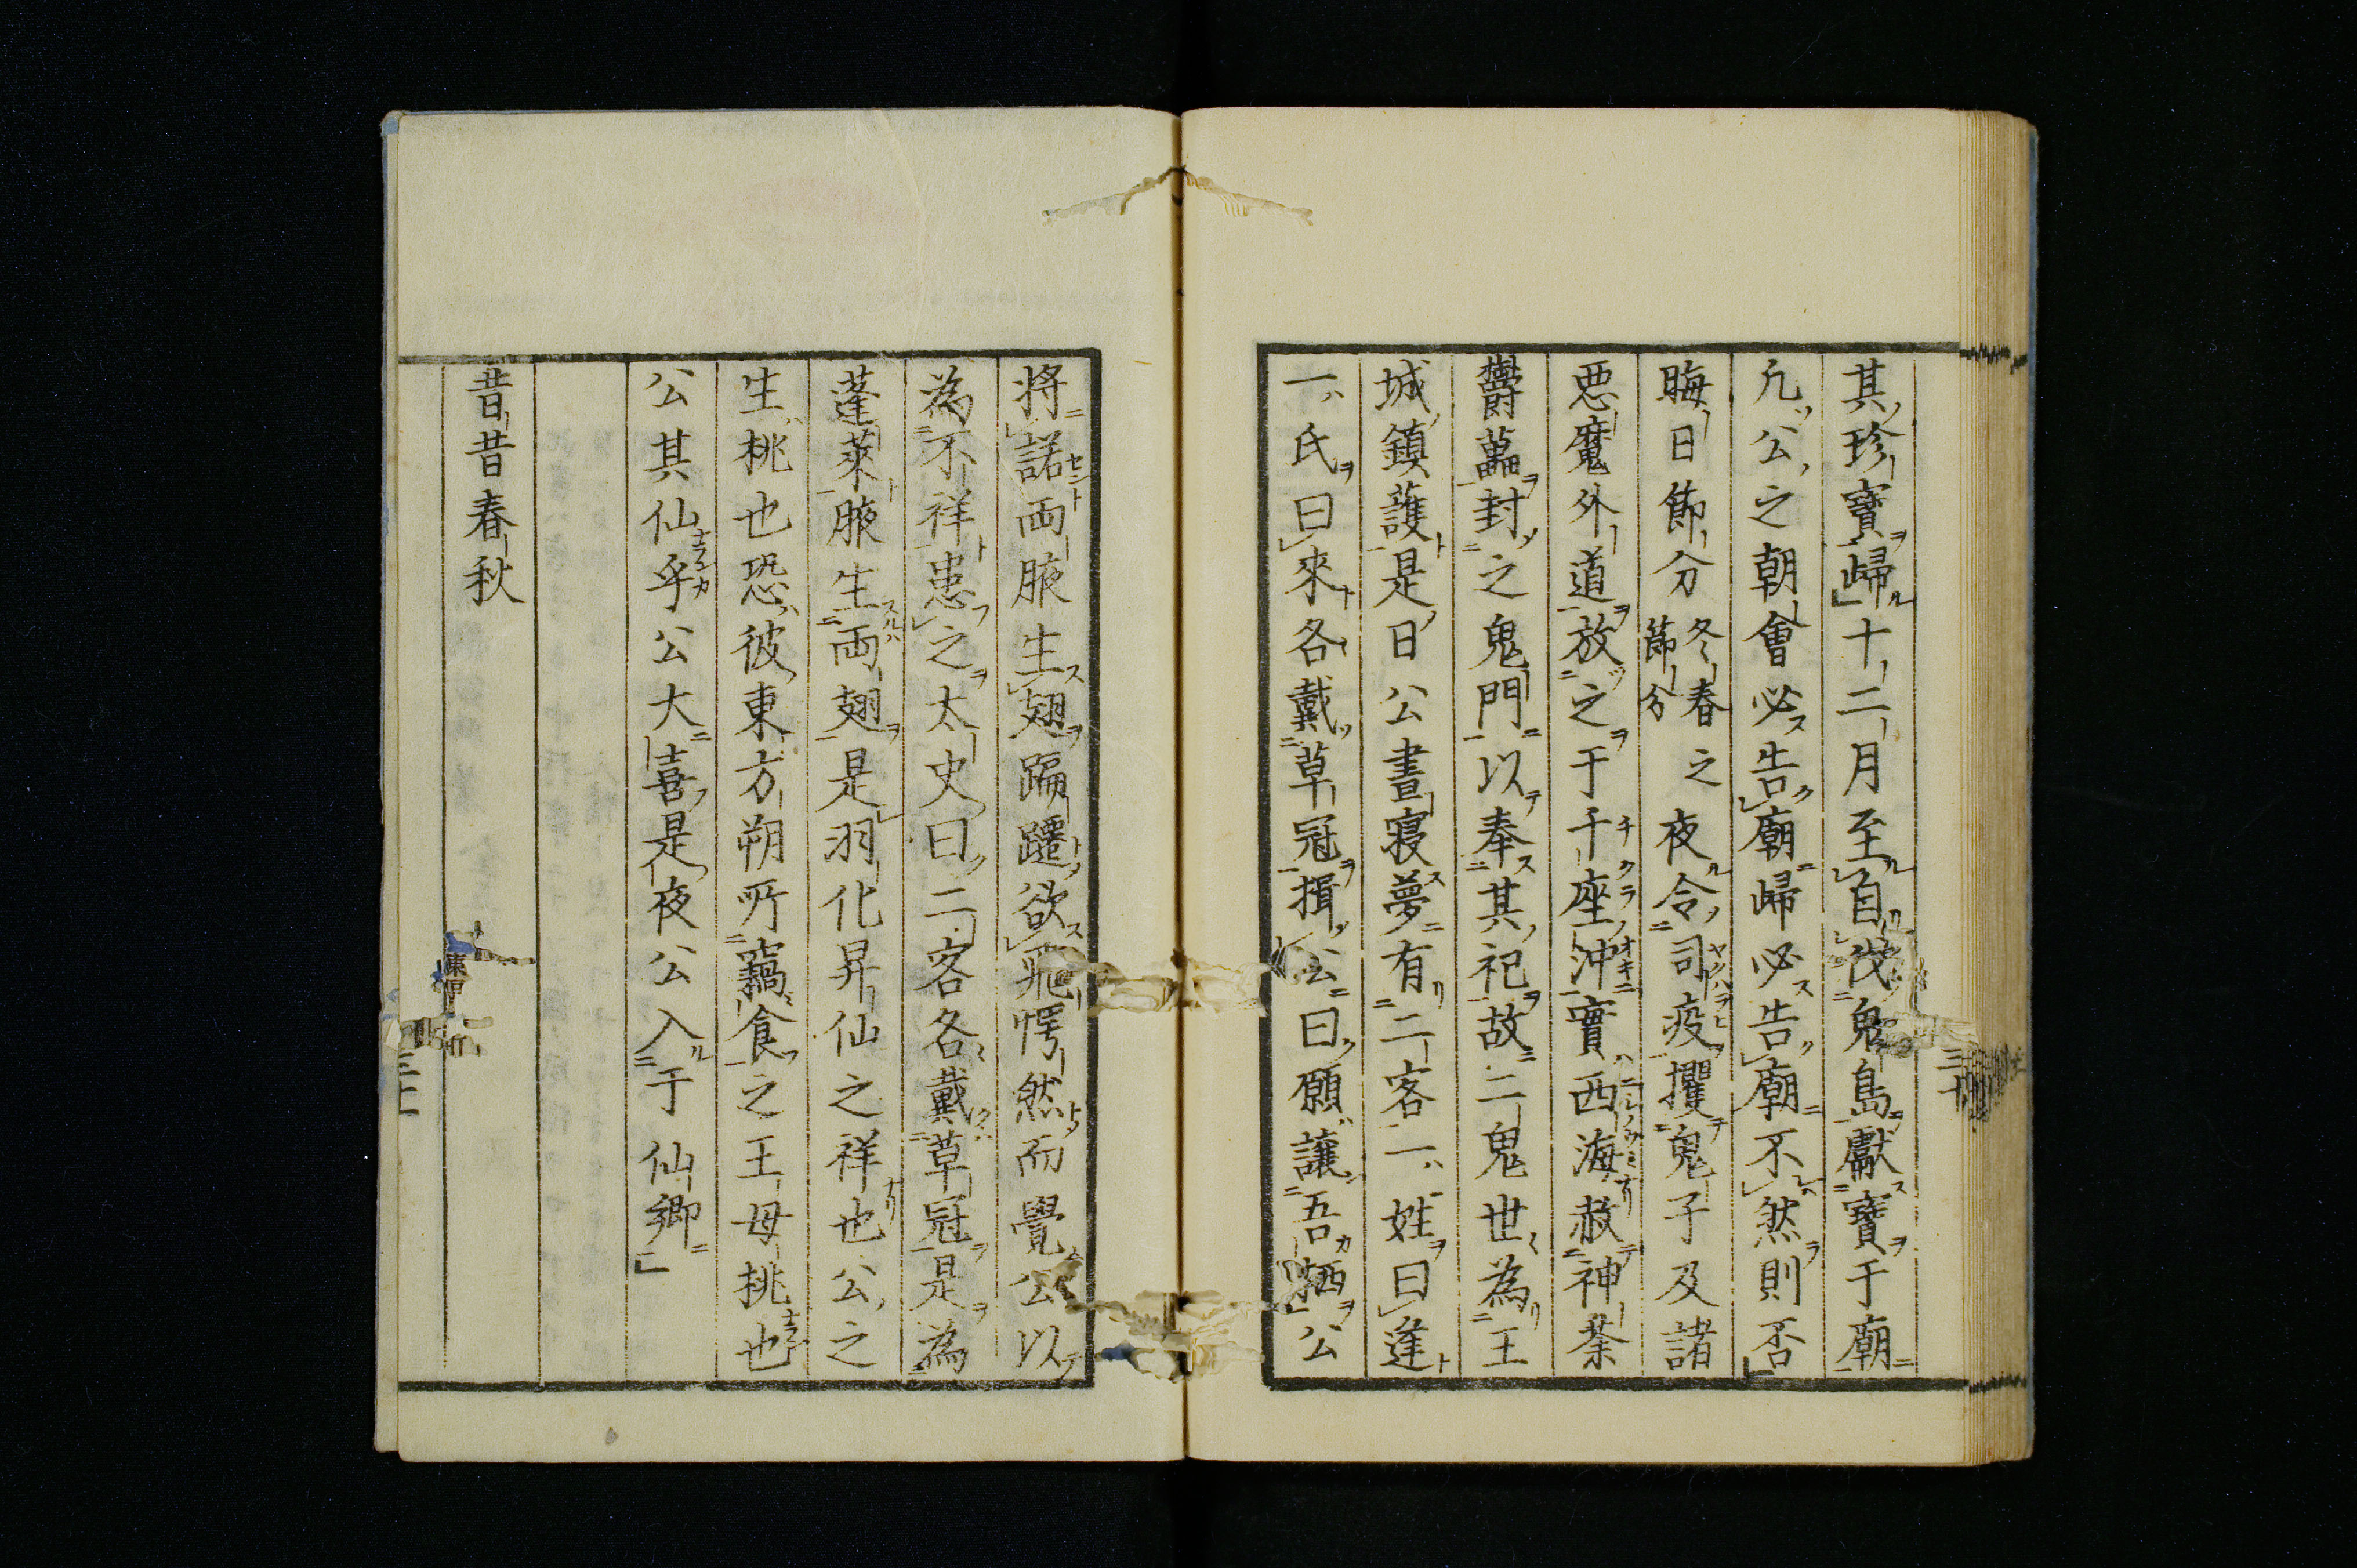 其珍寶歸十二月至自伐鬼島獻寶于廟
凢公之朝會必告廟歸必告廟不然則否
晦日節分冬春節分之夜令司疫攫鬼子及諸
悪魔外道放之于千座沖實西海赦神荼
欝藟封之鬼門以奉其祀故二鬼世為王
城鎮護是日公晝寝夢有二客一姓曰蓬
一氏曰來各戴草冠揖公曰願讓吾栖公
将諾両腋生翅蹁躚欲飛愕然而覺公以
為不祥患之太史曰二客各戴草冠是為
蓬萊腋生両翅是羽化昇仙之祥也公之
生桃也恐彼東方朔所竊食之王母桃也
公其仙乎公大喜是夜公入于仙郷
昔昔春秋